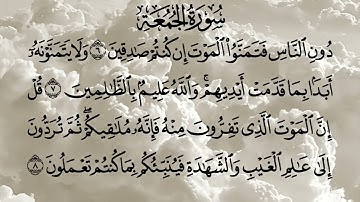 سُورَةُ الجُمُعَة
دُونِ النَّاسِ فَتَمَنَّوُا۟ الْمَوْتَ إِن كُنتُمْ صَٰدِقِينَ ٦ وَلَا يَتَمَنَّوْنَهُۥٓ
أَبَدًۢا بِمَا قَدَّمَتْ أَيْدِيهِمْ ۚ وَاللَّهُ عَلِيمٌۢ بِالظَّٰلِمِينَ ٧ قُلْ
إِنَّ الْمَوْتَ الَّذِى تَفِرُّونَ مِنْهُ فَإِنَّهُۥ مُلَٰقِيكُمْ ۖ ثُمَّ تُرَدُّونَ
إِلَىٰ عَٰلِمِ الْغَيْبِ وَالشَّهَٰدَةِ فَيُنَبِّئُكُم بِمَا كُنتُمْ تَعْمَلُونَ ٨